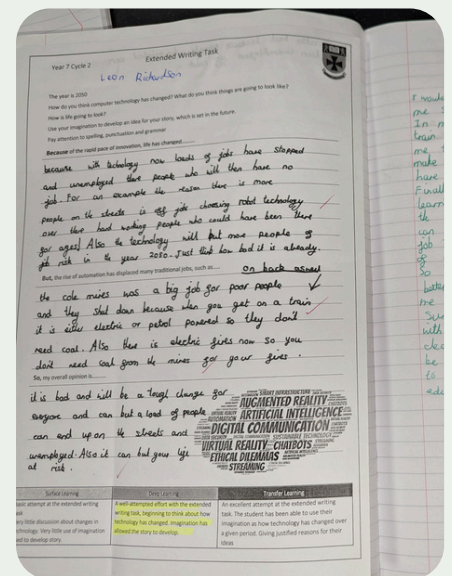 Year 7 Cycle 2
Extended Writing Task
Leon Richardson
The year is 2050
How do you think computer technology has changed? What do you think things are going to look like?
How is life going to look?
Use your imagination to develop an idea for your story, which is set in the future.
Pay attention to spelling, punctuation and grammar
Because of the rapid pace of innovation, life has changed
because with technology now loads of jobs have stopped
and unemployed there people who will then have no
job. For an example the reason there is more
people on the streets is of jobs choosing robot technology
over there hard working people who could have been there
for ages! Also the technology will but more people of
job risk in the year 2050. Just think how bad it is already.
But, the rise of automation has displaced many traditional jobs, such as
on back
the cole mines was a big job for poor people
and they shut down because when you get on a train
it is either electric or petrol powered so they don't
need coal. Also there is electric fires now so you
don't need coal from the mines for your fires.
So, my overall opinion is
it is bad and will be a tough change for
everyone and can but a load of people
can end up on the streets and
unemployed. Also it can but your life
at risk.
SMART INFRASTRUCTURE
AUGMENTED REALITY
ARTIFICIAL INTELLIGENCE
DIGITAL COMMUNICATION
SUSTAINABLE TECHNOLOGY
VIRTUAL REALITY CHATBOTS
ETHICAL DILEMMAS
STREAMING
Surface Learning
basic attempt at the extended writing
task
very little discussion about changes in
technology. Very little use of imagination
used to develop story.
Deep Learning
A well-attempted effort with the extended
writing task, beginning to think about how
technology has changed. Imagination has
allowed the story to develop.
Transfer Learning
An excellent attempt at the extended writing
task. The student has been able to use their
imagination as how technology has changed over
a given period. Giving justified reasons for their
ideas
I would
me
In
train
me
make
have
learn
the
can
job
of
so
better
me
with
be
to